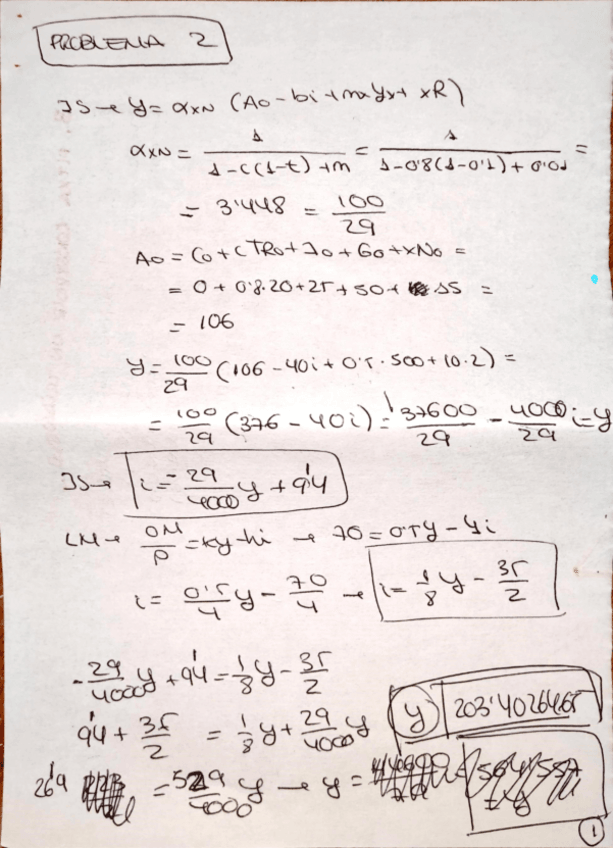 PROBLEMA 2
IS → Y = αxN (Ao - bi + mx Yx + xR)
αxN = 1 / (1-c(1-t)+m) = 1 / (1-0'8(1-0'1)+0'01) =
= 3'448 = 100/29
Ao = Co + cTRo + Io + Go + xNo =
= 0 + 0'8·20 + 25 + 50 + 15 =
= 106
Y = 100/29 (106 - 40i + 0'5·500 + 10·2) =
= 100/29 (376 - 40i) = 37600/29 - 4000/29 i = Y
IS → i = -29/4000 Y + 9'4
LM → OM/P = kY - hi → 70 = 0'5Y - 4i
i = 0'5/4 Y - 70/4 → i = 1/8 Y - 35/2
-29/4000 Y + 9'4 = 1/8 Y - 35/2
9'4 + 35/2 = 1/8 Y + 29/4000 Y
Y 203'4026465
26'9 = 529/4000 Y → Y =
1